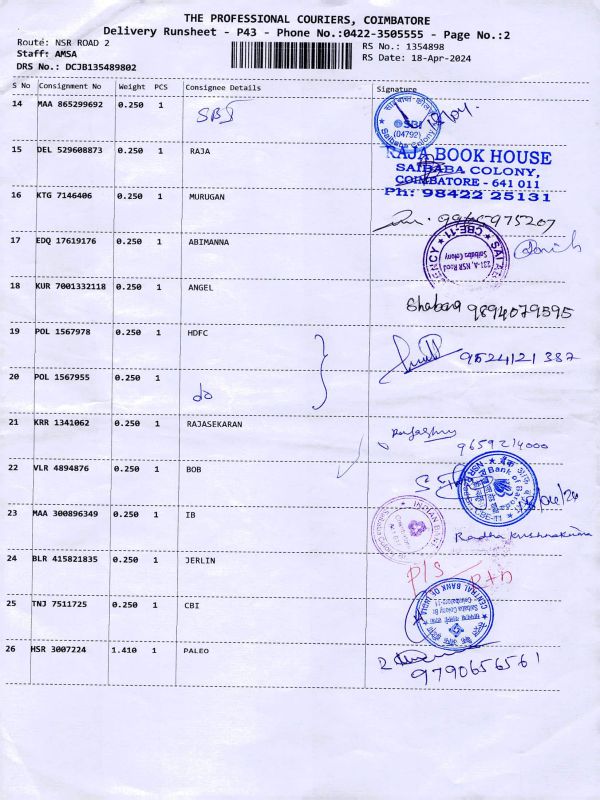 THE PROFESSIONAL COURIERS, COIMBATORE
Delivery Runsheet - P43 - Phone No.:0422-3505555 - Page No.:2
Route: NSR ROAD 2 RS No.: 1354898
Staff: AMSA RS Date: 18-Apr-2024
DRS No.: DCJB135489802
S No Consignment No Weight PCS Consignee Details Signature
14 MAA 865299692 0.250 1 SBI
SBI
(04792)
Saibaba Colony
15 DEL 529608873 0.250 1 RAJA
RAJA BOOK HOUSE
SAIBABA COLONY,
COIMBATORE - 641 011
Ph: 98422 25131
16 KTG 7146406 0.250 1 MURUGAN
17 EDQ 17619176 0.250 1 ABIMANNA
CBE-11
231-A, NSR Road
Saibaba Colony
18 KUR 7001332118 0.250 1 ANGEL
9894079595
19 POL 1567978 0.250 1 HDFC
9524121387
20 POL 1567955 0.250 1 do
21 KRR 1341062 0.250 1 RAJASEKARAN
9659214000
22 VLR 4894876 0.250 1 BOB
Bank of Baroda
CBE-11
23 MAA 300896349 0.250 1 IB
INDIAN BANK
Radha Krishnakumar
24 BLR 415821835 0.250 1 JERLIN
P/S
25 TNJ 7511725 0.250 1 CBI
CENTRAL BANK OF INDIA
Saibaba Colony Br.
Coimbatore-11
26 HSR 3007224 1.410 1 PALEO
9790656561